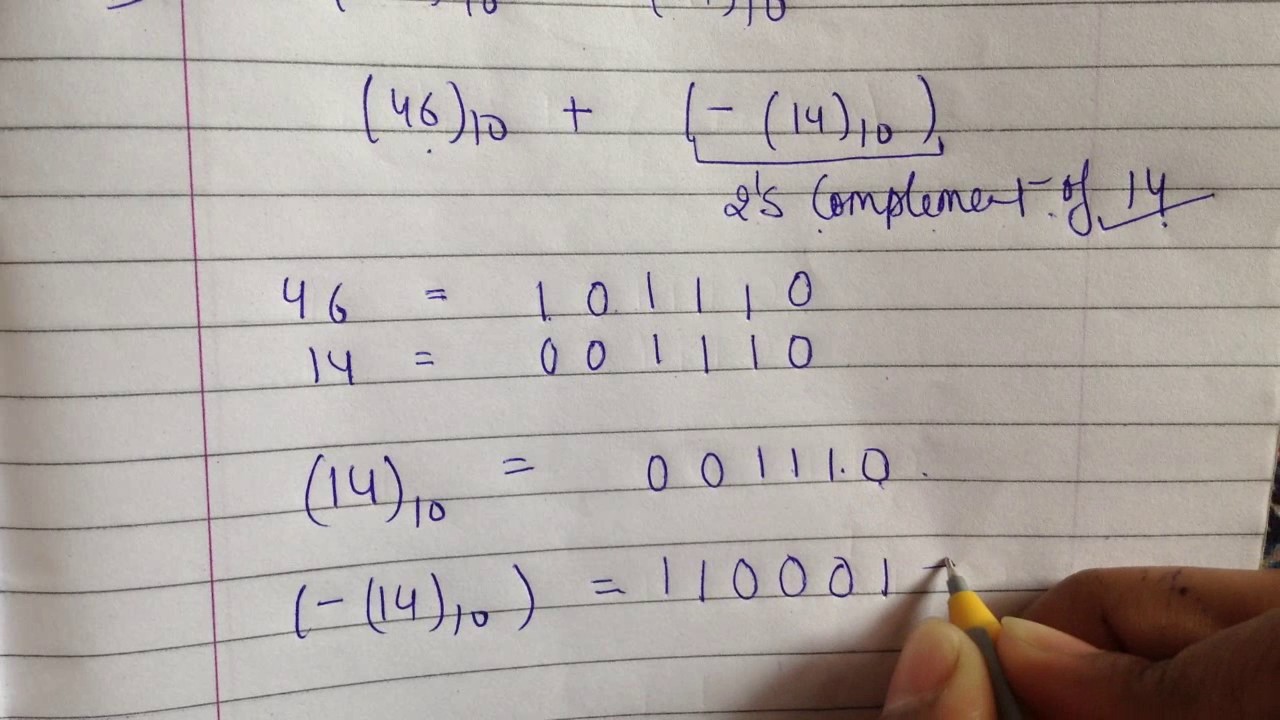 (46)10 + (-(14)10)
2's Complement of 14
46 = 101110
14 = 001110
(14)10 = 001110
(-(14)10) = 110001